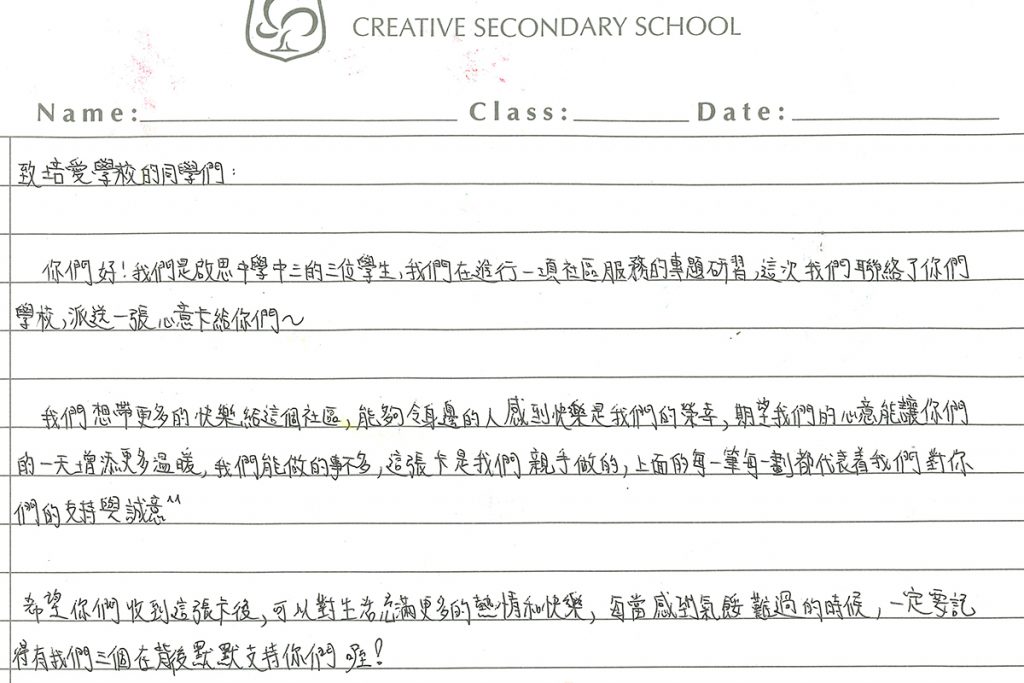 CREATIVE SECONDARY SCHOOL
Name: Class: Date:
致培愛學校的同學們：
你們好！我們是啟思中學中三的三位學生，我們在進行一項社區服務的專題研習，這次我們聯絡了你們
學校，派送一張心意卡給你們～
我們想帶更多的快樂給這個社區，能夠令身邊的人感到快樂是我們的榮幸，期望我們的心意能讓你們
的一天增添更多溫暖，我們能做的事不多，這張卡是我們親手做的，上面的每一筆每一劃都代表着我們對你
們的支持與誠意^^
希望你們收到這張卡後，可以對生活充滿更多的熱情和快樂，每當感到氣餒難過的時候，一定要記
得有我們三個在背後默默支持你們喔！